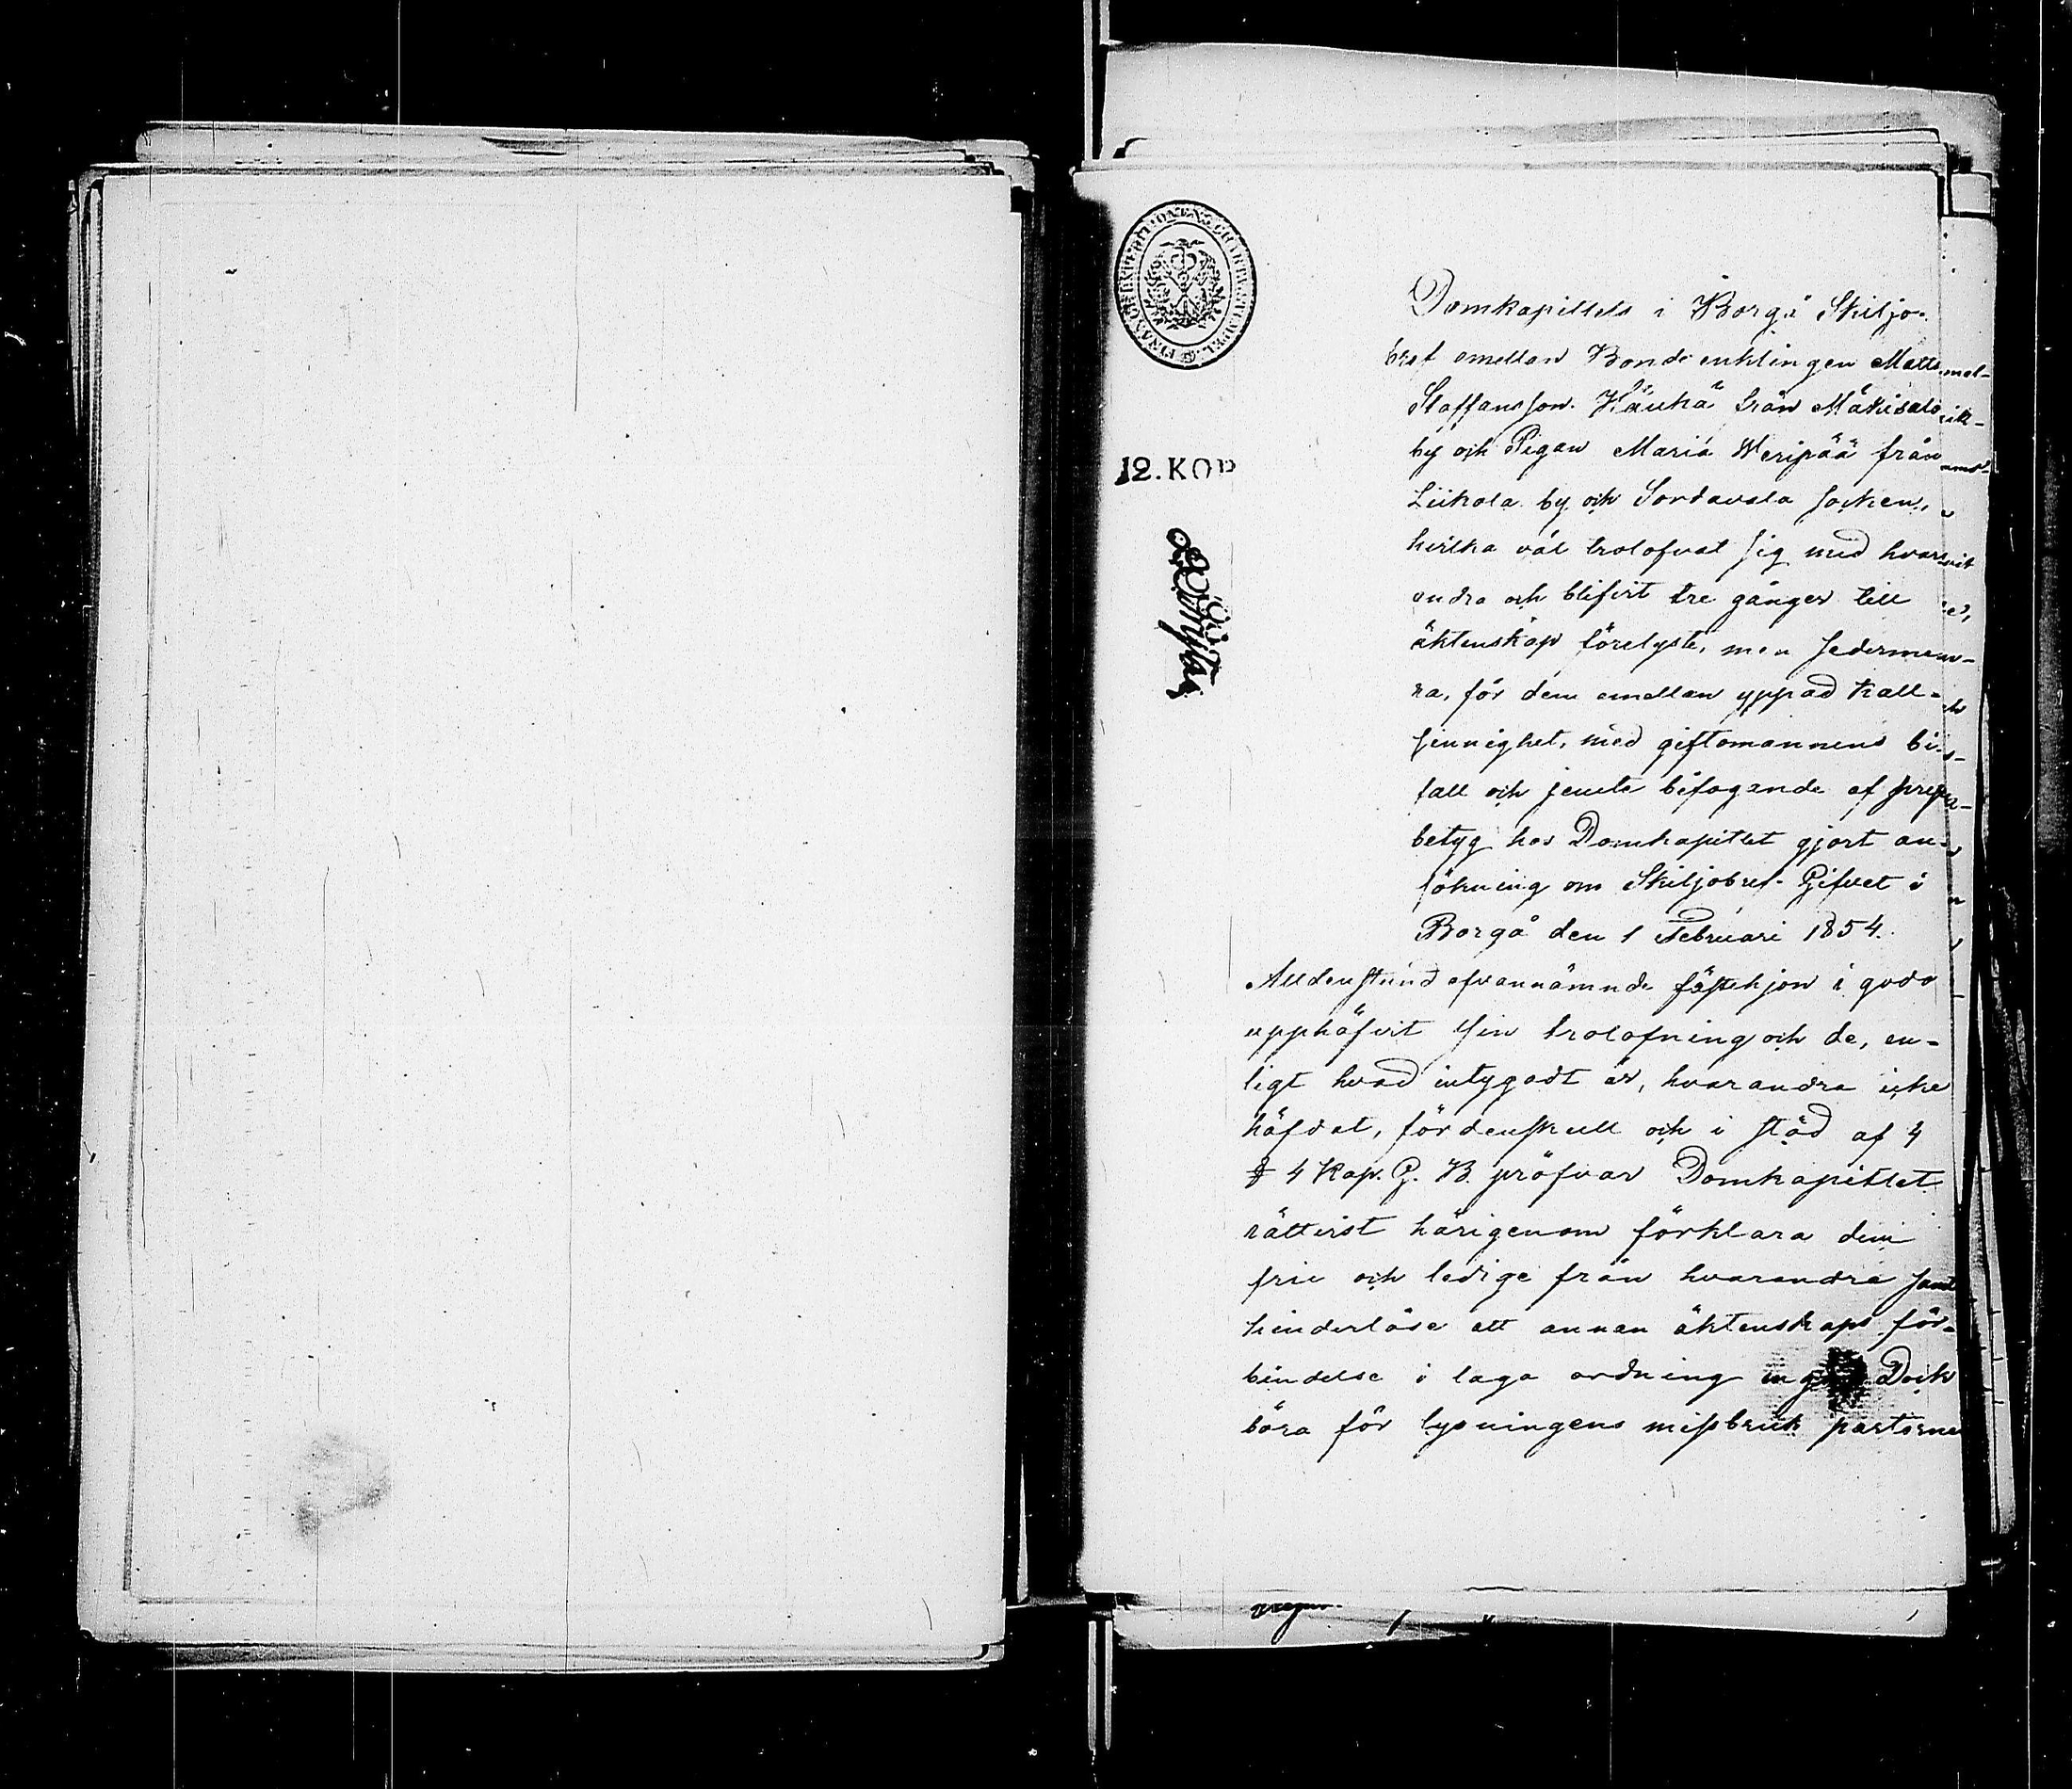 FINANCE EXPEDITIONENS CHARTÆ STEMPEL
12. KOP
Domkapitlets i Borgå Skiljo-
bref emellan Bondeenklingen Matts
Staffansson Käukä från Mäkisalo
by och Pigan Maria Weripää från
Liikola by och Sordavala Socken,
hvilka väl trolofvat sig med hvar-
andra och blifvit tre gånger till
äktenskap förelyste, men sedermera
ra, för dem emellan yppad kall-
sinnighet, med giftomannens bi-
fall och jemte bifogande af prest-
betyg hos Domkapitlet gjort an-
sökning om Skiljobref. Gifvet i
Borgå den 1 Februari 1854.
Alldenstund ofvannämnde fästehjon i godo
upphäfvit sin trolofning och de, en-
ligt hvad intygadt är, hvarandra icke
häfdat, fördenskull och i stöd af 4
§ 4 Kap. G. B. pröfvar Domkapitlet
rättvist härigenom förklara dem
frie och ledige från hvarandra samt
hinderlöse att annan äktenskaps för-
bindelse i laga ordning ingå Dock
böra för lysningens missbruk parterne